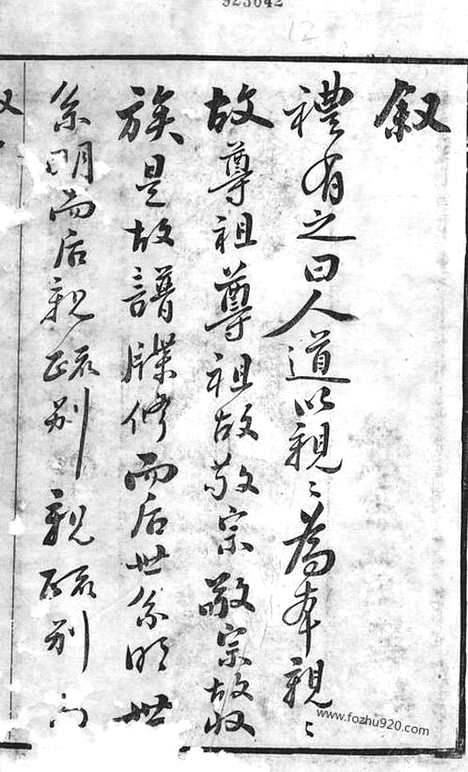 923642
12
叙
禮有之曰人道以親〻為本親〻
故尊祖尊祖故敬宗敬宗故收
族是故譜牒修而后世系明世
系明而后親疏别親疏别
www.fozhu920.com